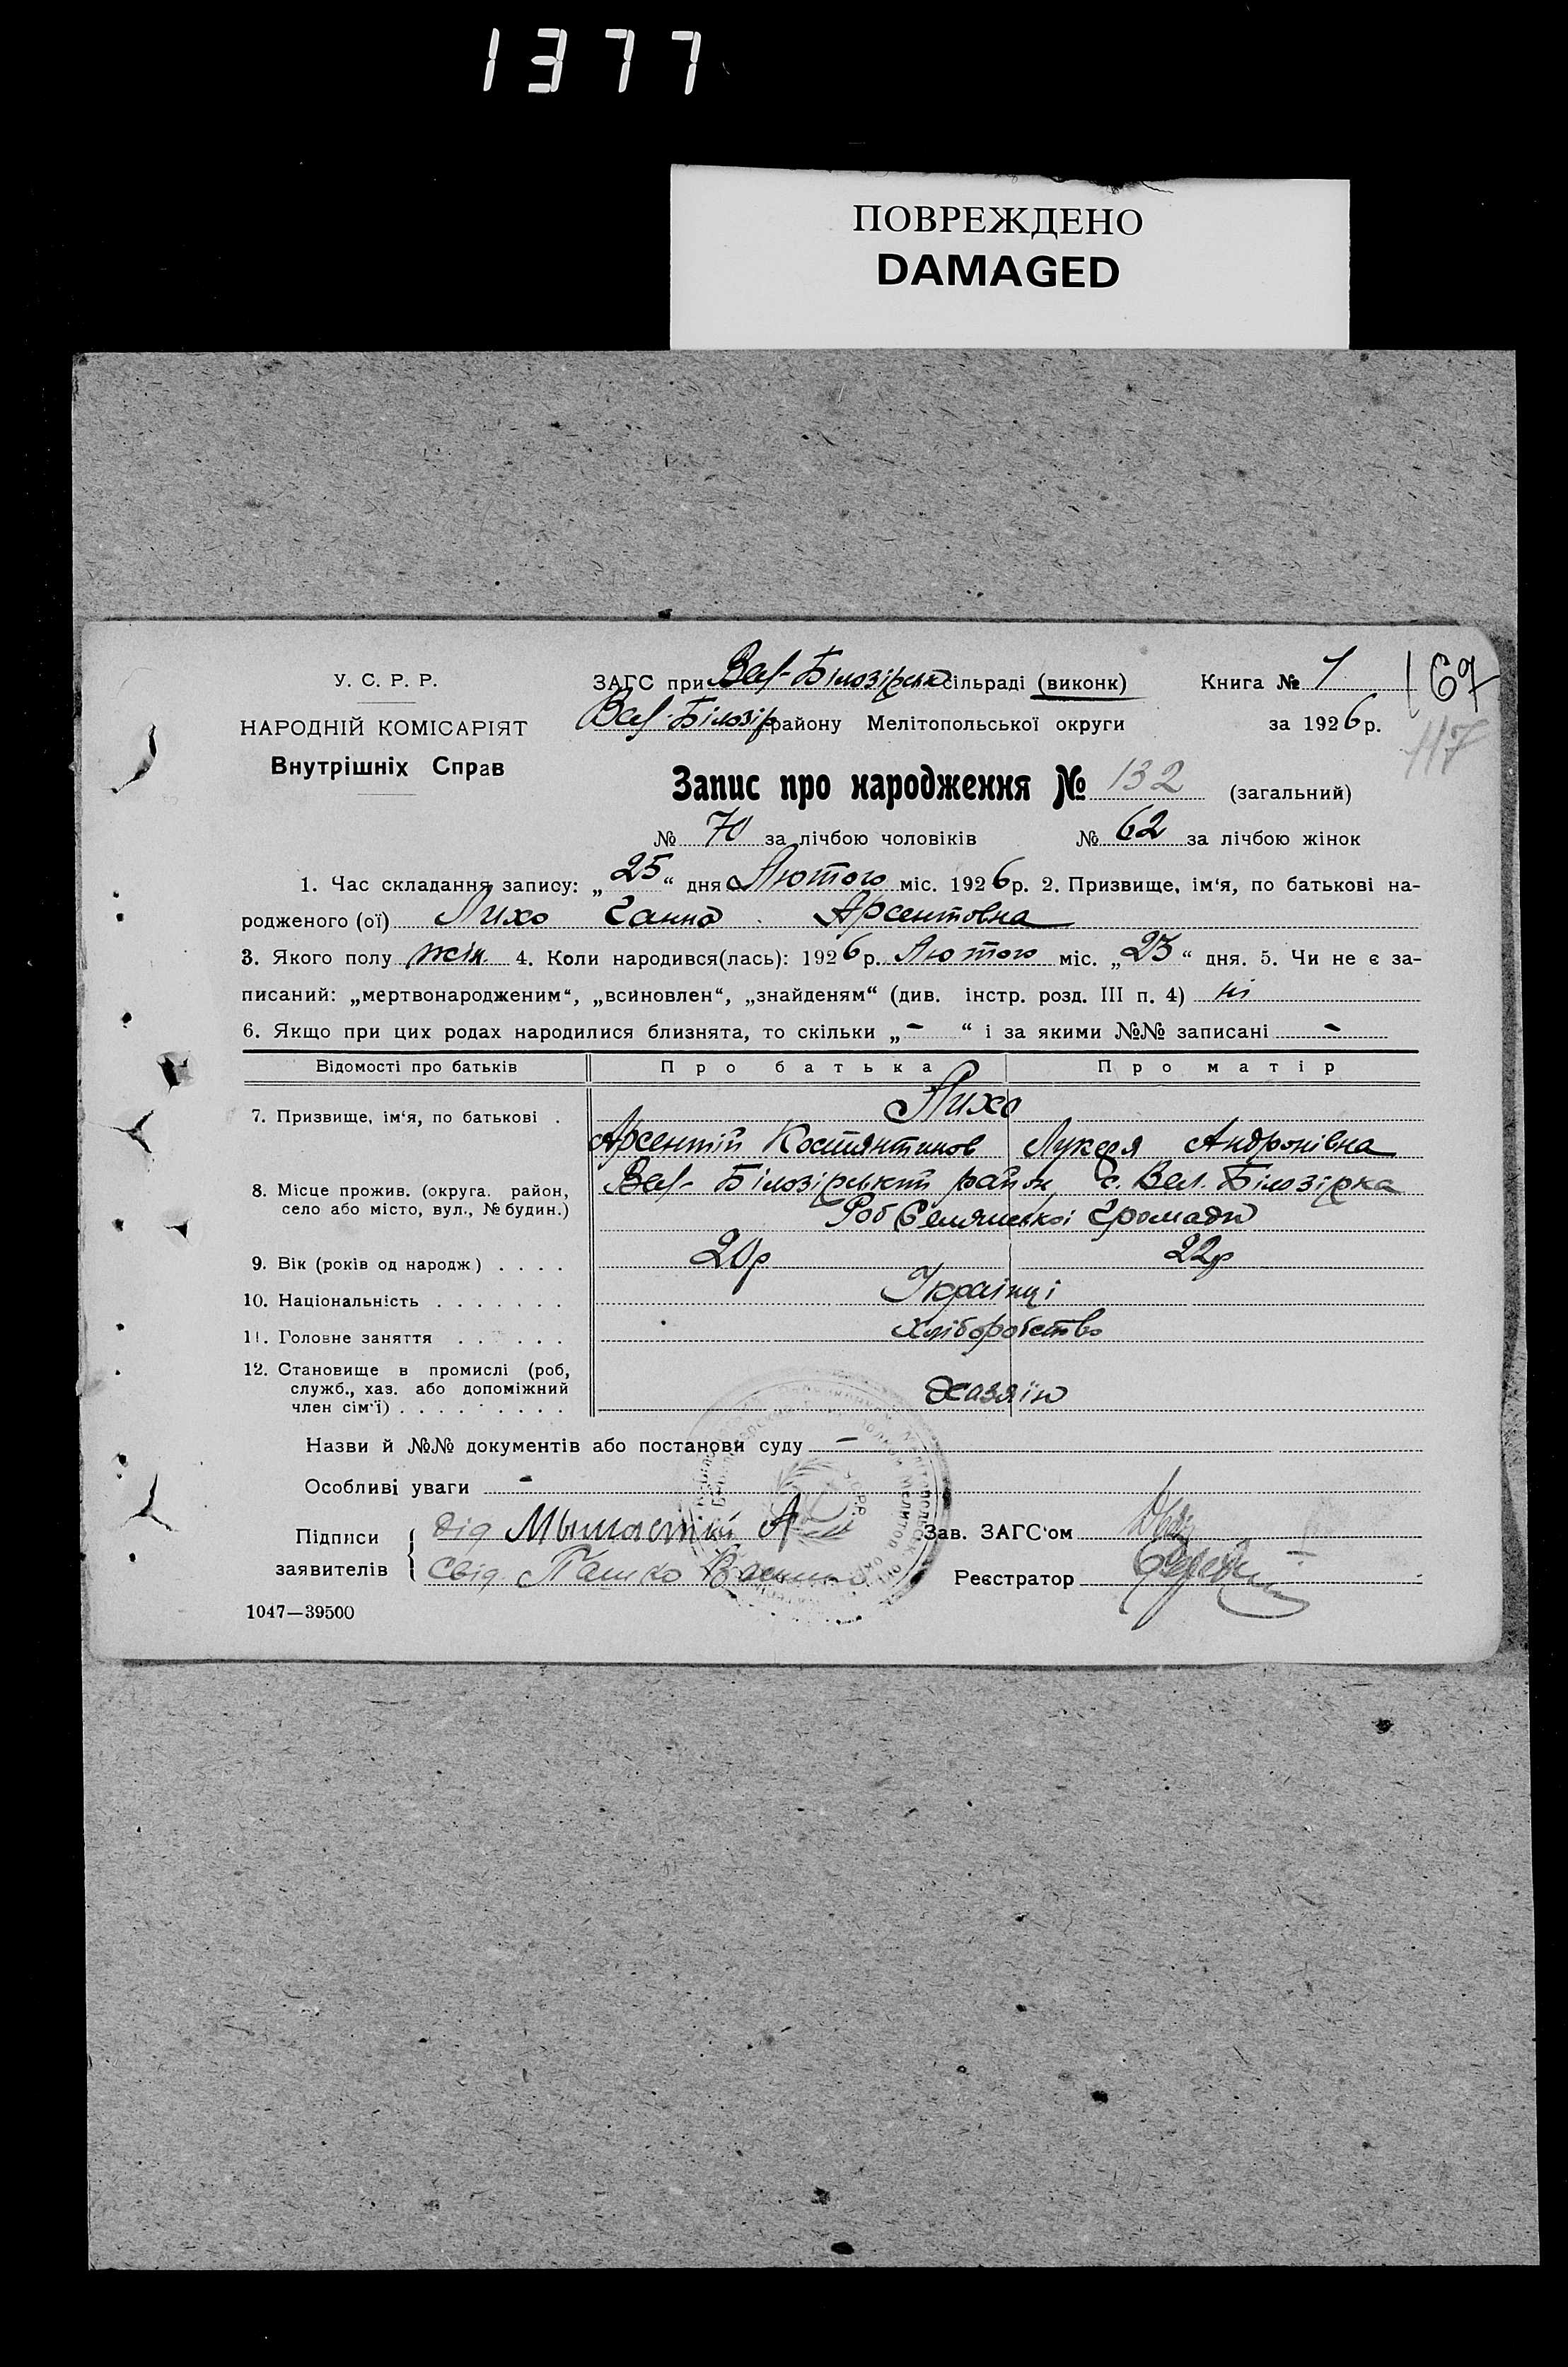 1377
ПОВРЕЖДЕНО
DAMAGED
У. С. Р. Р.
НАРОДНІЙ КОМІСАРІЯТ
Внутрішніх Справ
ЗАГС при Вел-Білозірськ сільраді (виконк) Книга № 1
Вел-Білозір району Мелітопольської округи за 1926 р.
167
117
Запис про народження № 132 (загальний)
№ 70 за лічбою чоловіків № 62 за лічбою жінок
1. Час складання запису: „25“ дня Лютого міс. 1926 р. 2. Призвище, ім‘я, по батькові на-
родженого (ої) Лихо Ганна Арсентовна
3. Якого полу жін. 4. Коли народився(лась): 1926 р. Лютого міс. „23“ дня. 5. Чи не є за-
писаний: „мертвонародженим“, „всиновлен“, „знайденям“ (див. інстр. розд. III п. 4) ні
6. Якщо при цих родах народилися близнята, то скільки „-“ і за якими №№ записані -
Відомості про батьків Про батька Про матір
7. Призвище, ім‘я, по батькові . Лихо
Арсентій Костянтинов Лукеря Андронівна
8. Місце прожив. (округа. район, Вел-Білозірський район, с. Вел. Білозірка
село або місто, вул., № будин.) Роб Селянської Громади
9. Вік (років од народж) . . . . 20р 22р
10. Національність . . . . . . . Українці
11. Головне заняття . . . . . . Хліборобство
12. Становище в промислі (роб,
служб., хаз. або допоміжний Хазяїн
член сім‘ї) . . . . . . . . .
Назви й №№ документів або постанови суду -
Особливі уваги -
Підписи
заявителів
дід А
Свід Пашко
Зав. ЗАГС‘ом
Реєстратор
1047—39500